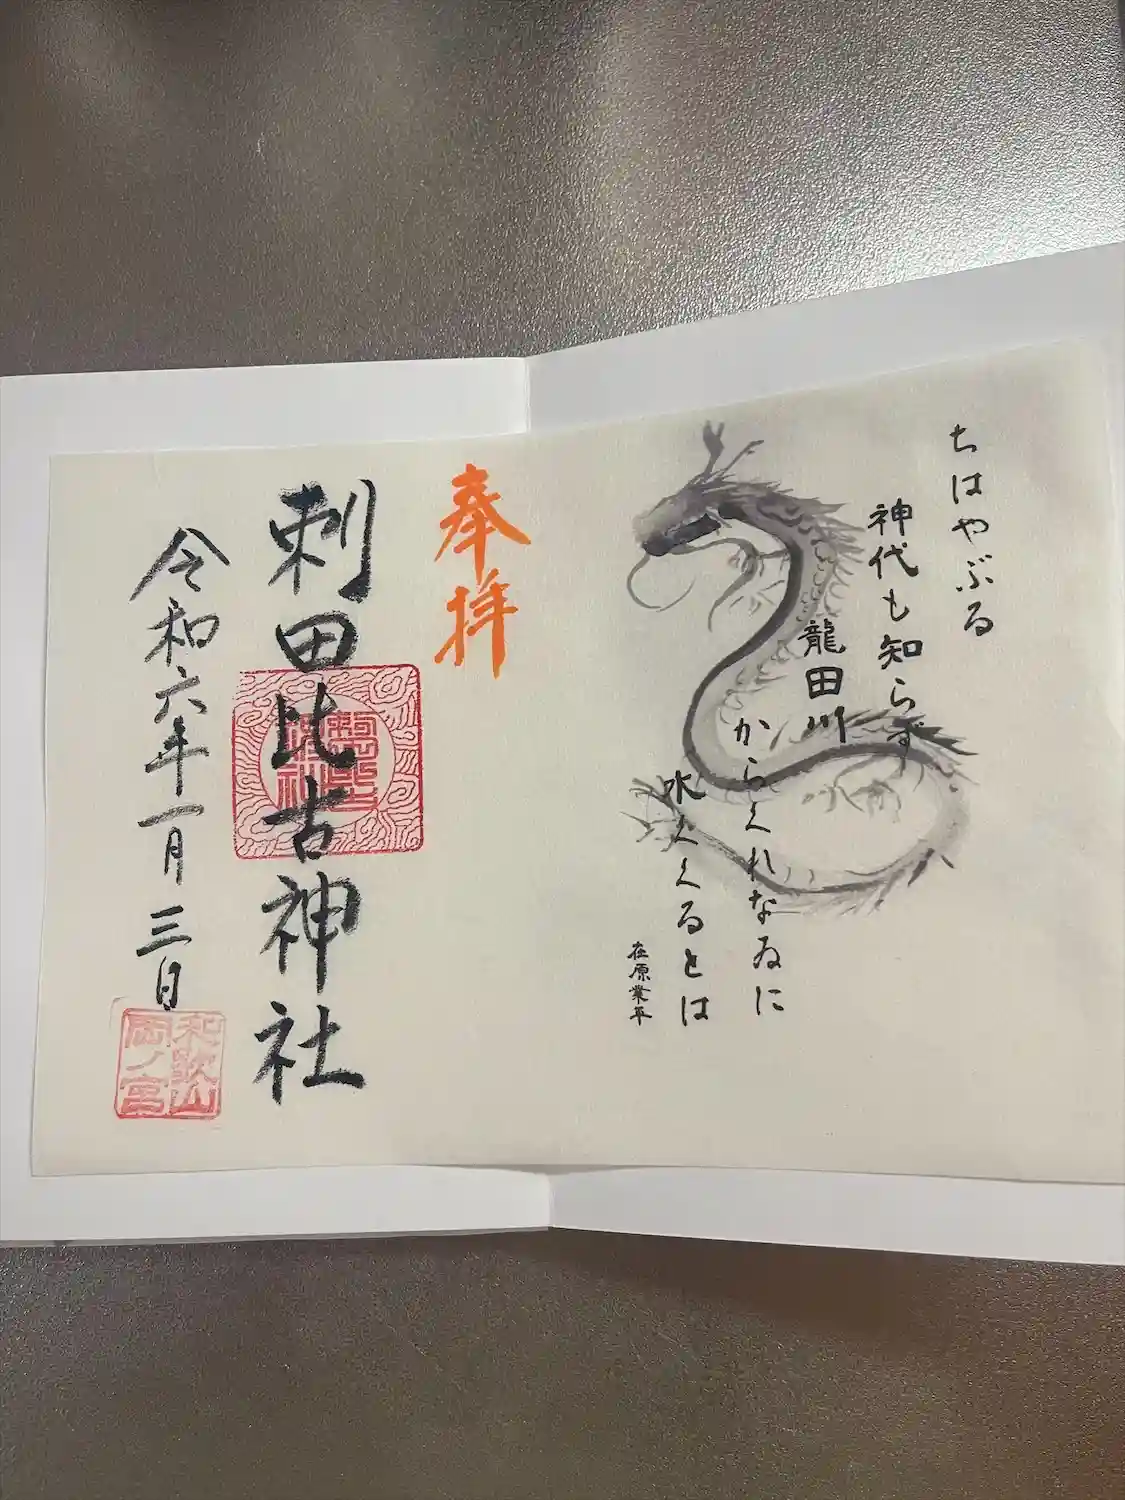 ちはやぶる
神代も知らず
龍田川
からくれなゐに
水くくるとは
在原業平
奉拝
刺田比古神社
令和六年一月三日
和歌山
岡ノ宮